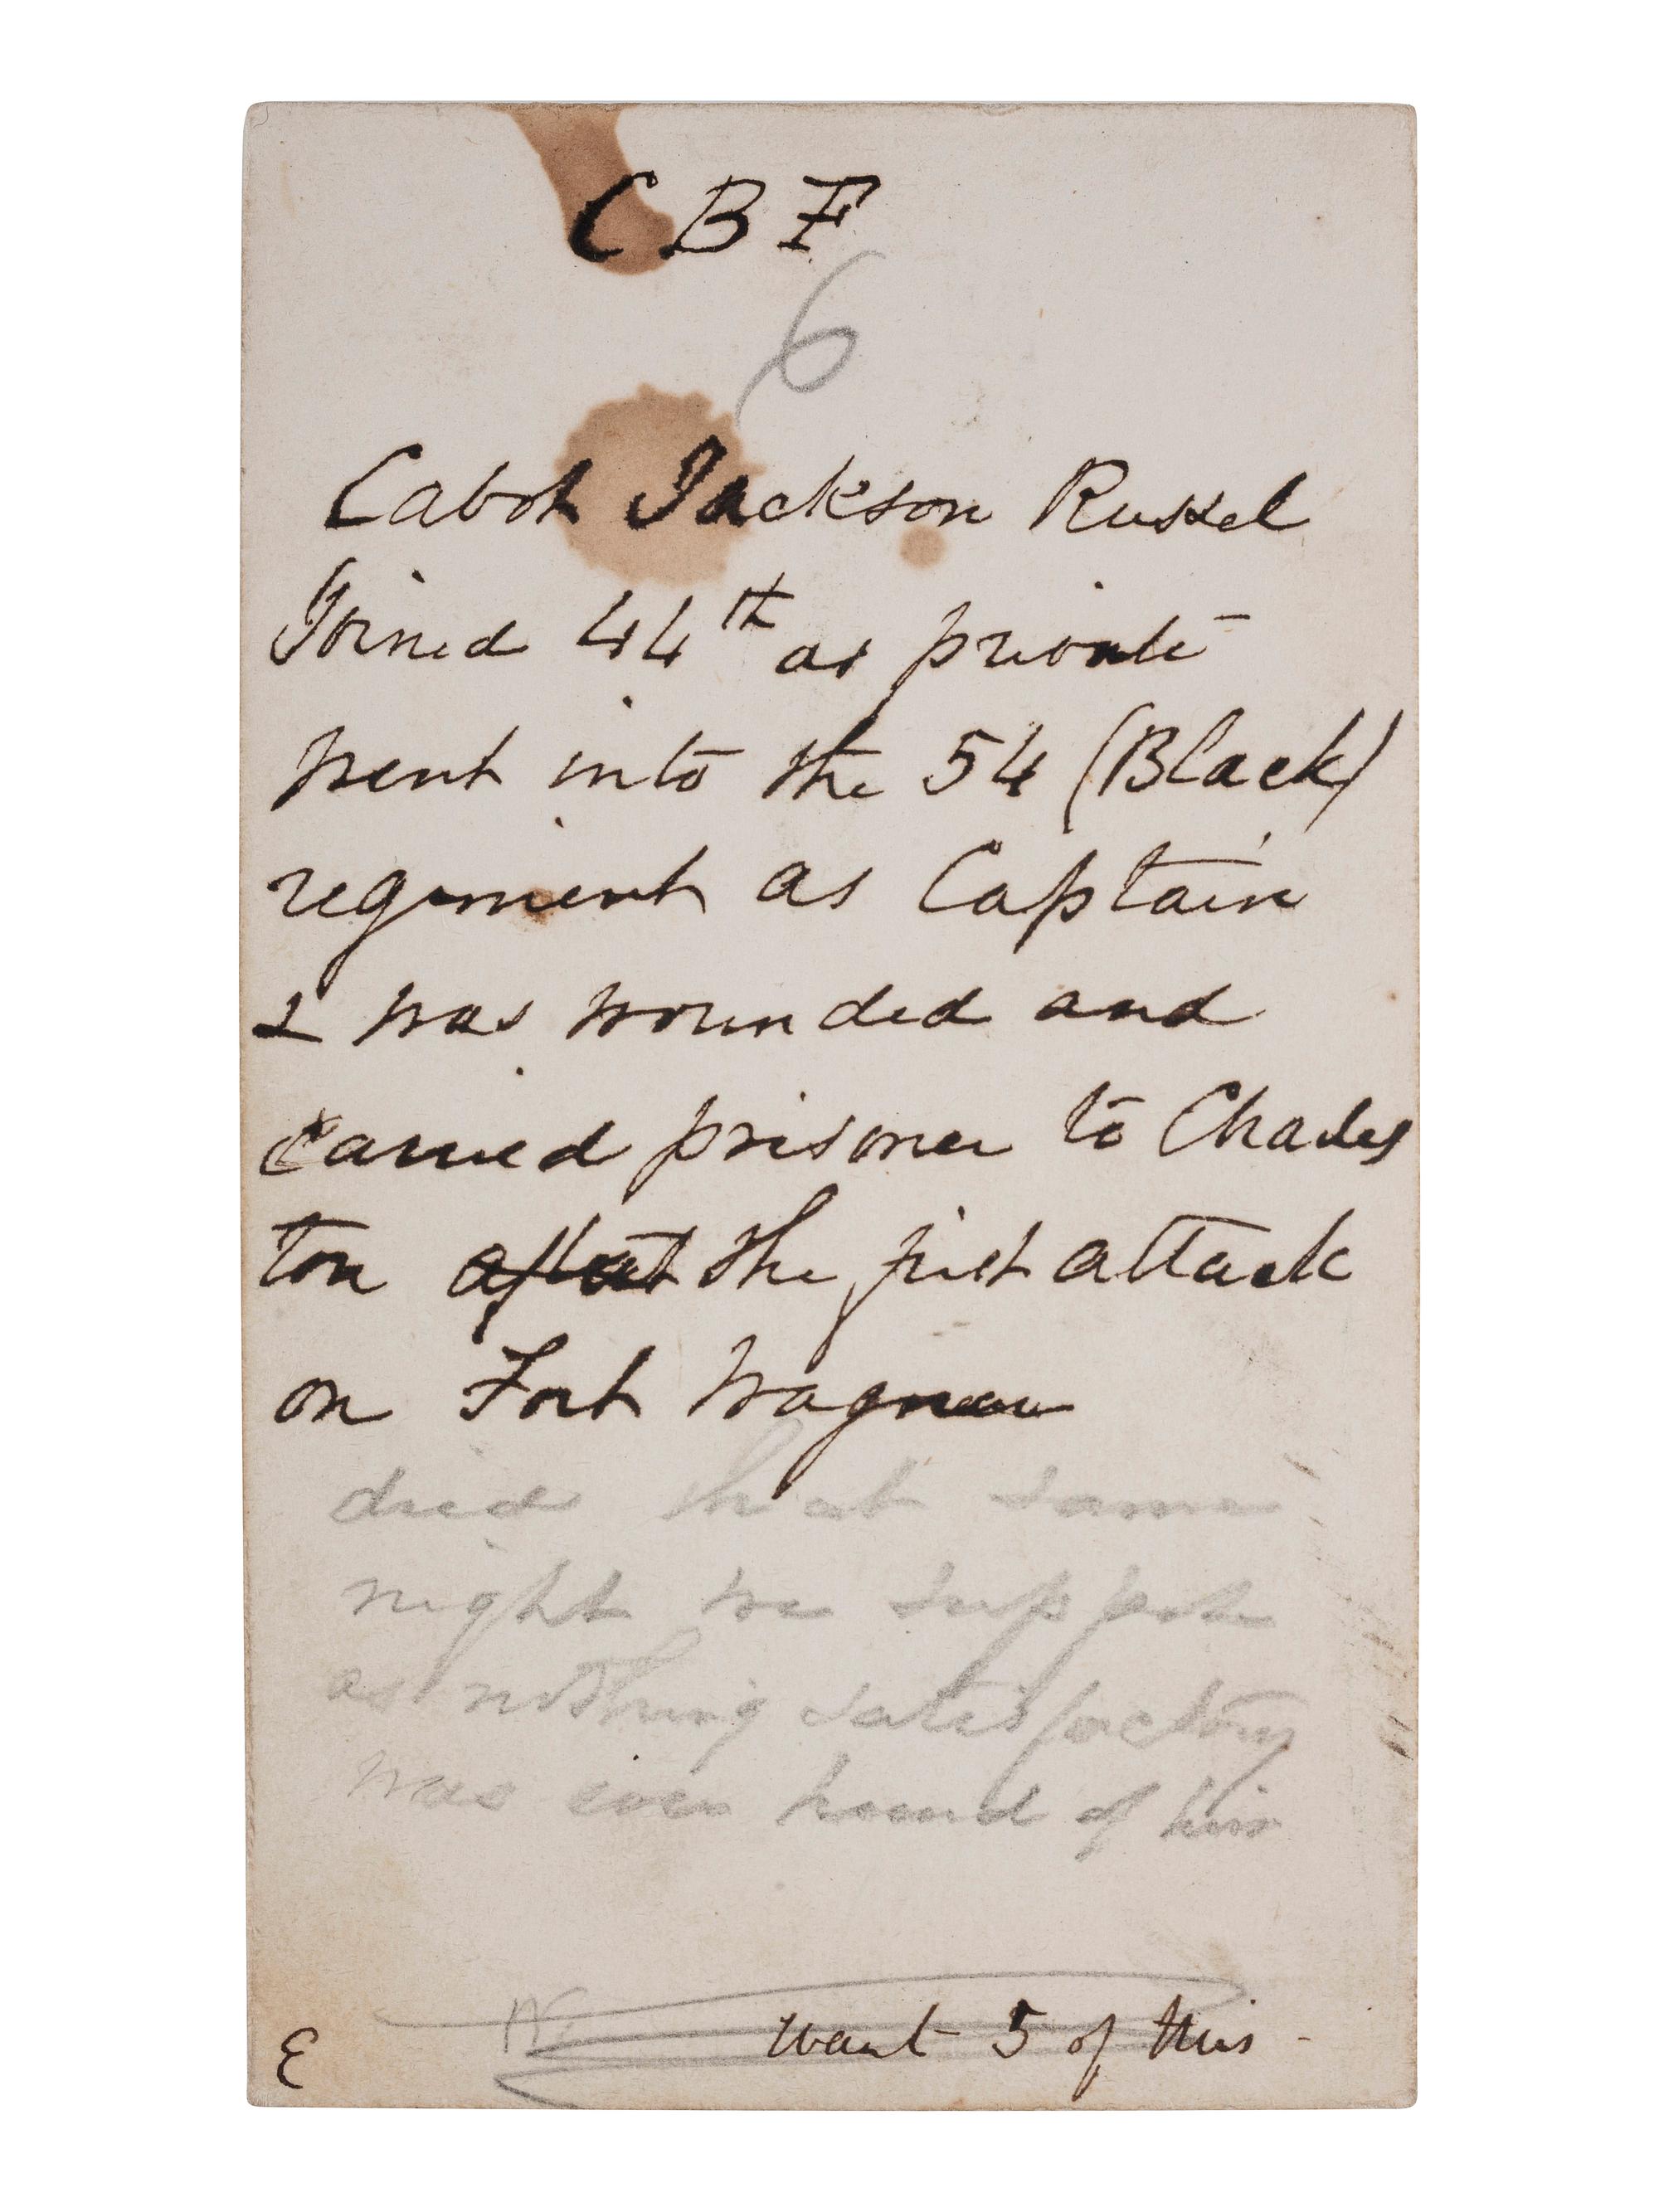 C B F
6
Cabot Jackson Russel
Joined 44th as private
went into the 54 (Black)
regiment as Captain
& was wounded and
carried prisoner to Charles
ton the first attack
on Fort Wagner
died that same
night we suppose
as nothing satisfactory
was ever heard of him
want 5 of this -
E